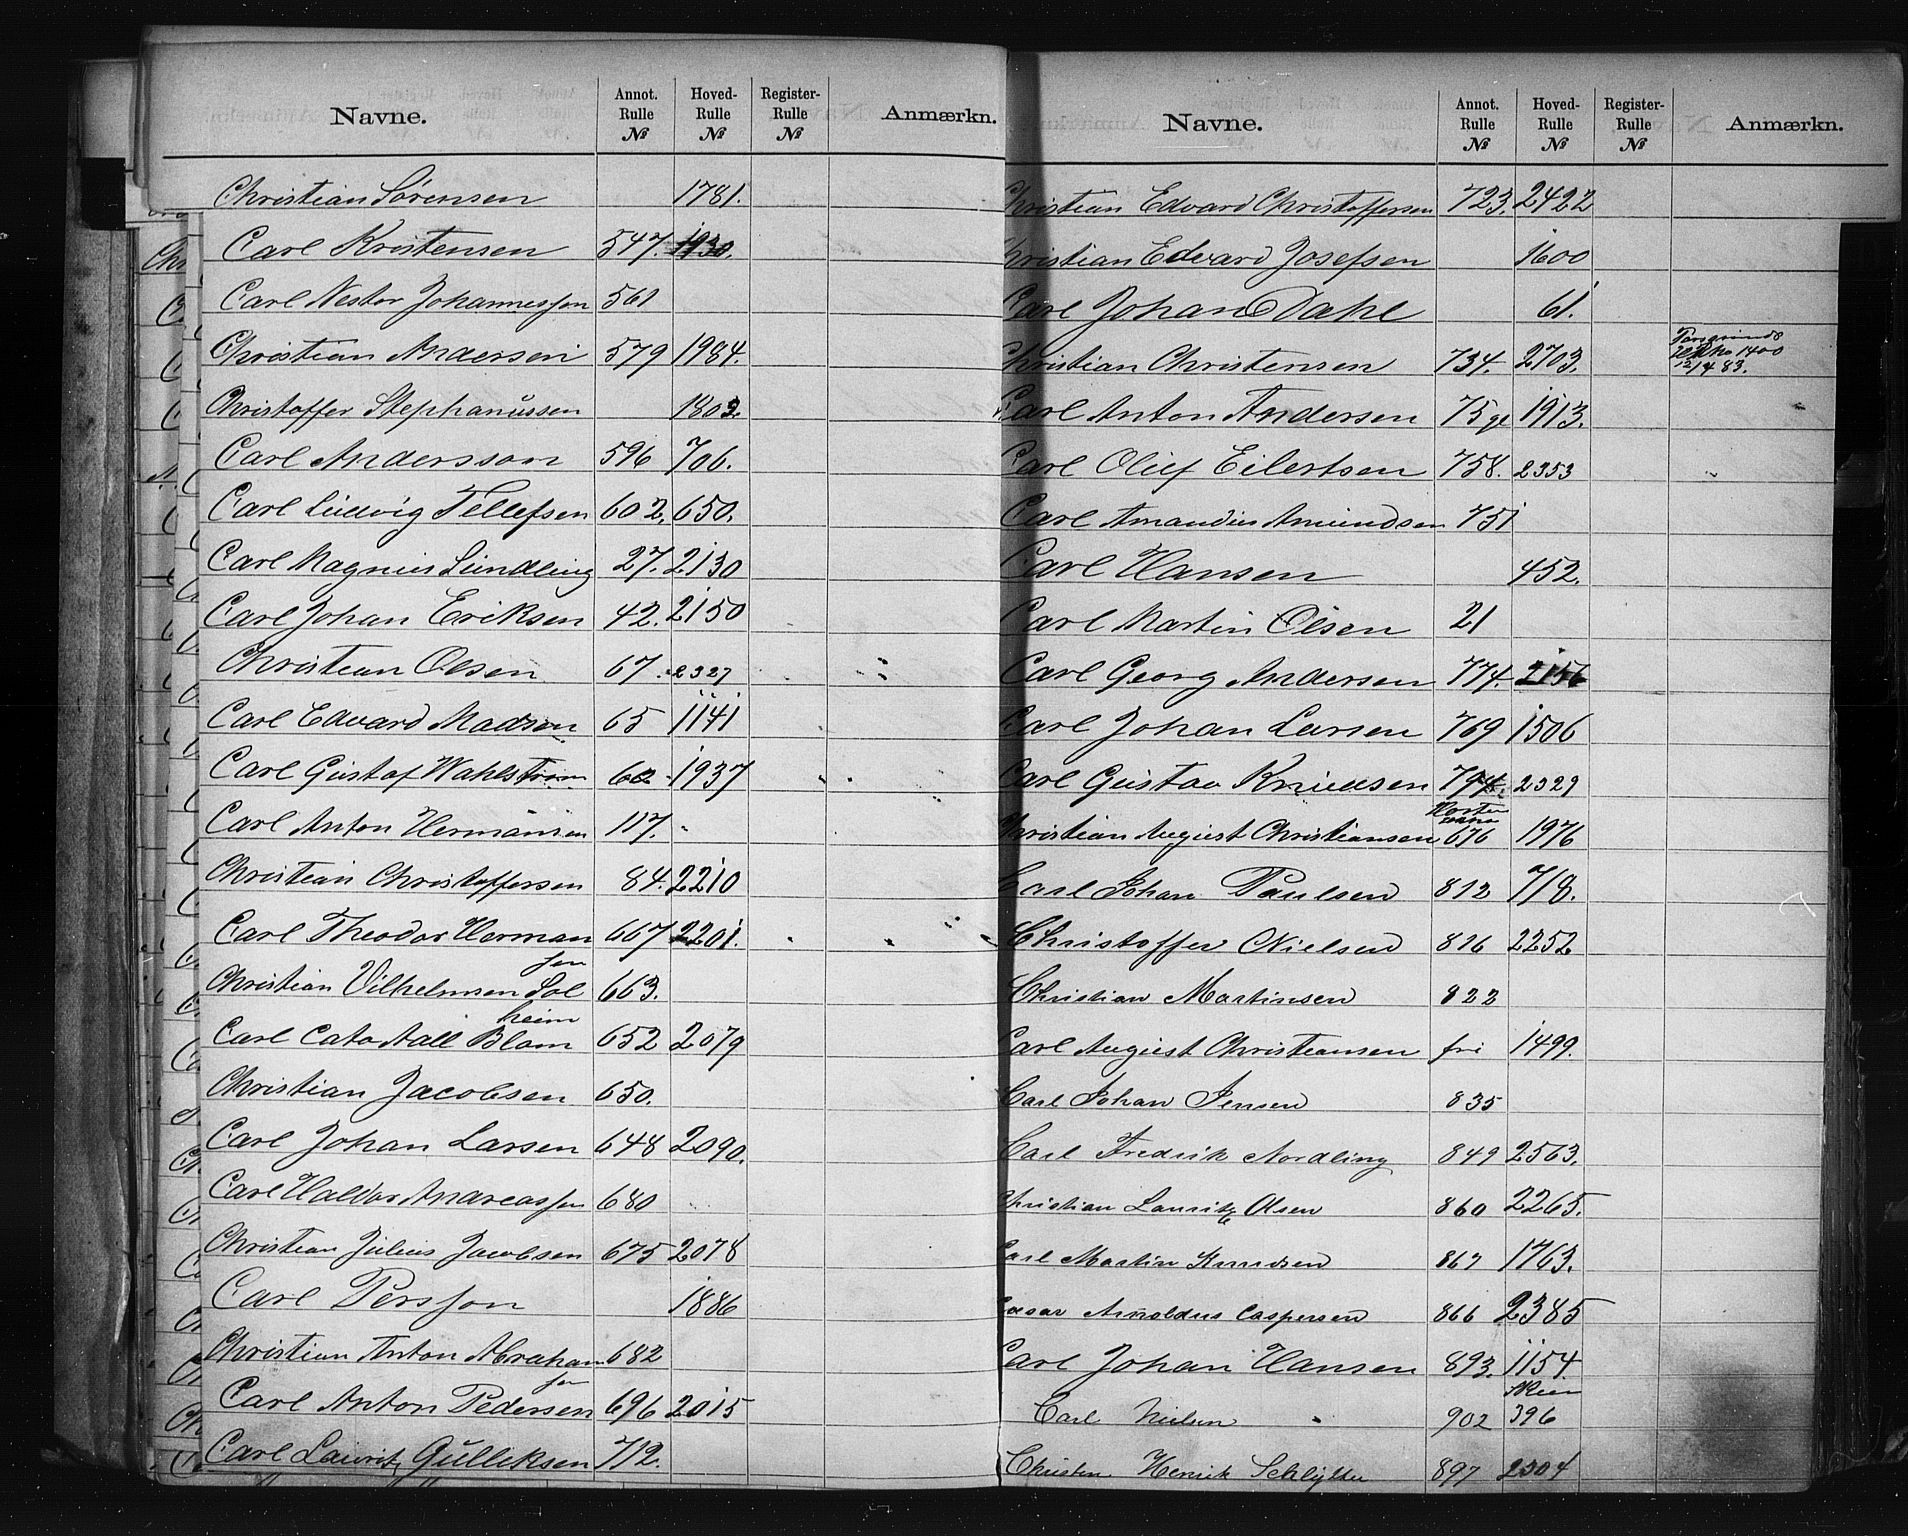 Navne. Annot. Rulle № Hoved- Rulle № Register- Rulle № Anmærkn.
Christian Sørensen 1781.
Carl Kristensen 547. 1930.
Carl Nestor Johannessen 561
Christian Andersen 579 1984.
Christoffer Stephanussen 1803.
Carl Andersson 596 706.
Carl Ludvig Tellefsen 602. 650.
Carl Magnus Lundling 27. 2130
Carl Johan Eriksen 42. 2150
Christian Olsen 67. 2327
Carl Edvard Madsen 65 1141
Carl Gustaf Wahlstrøm 62 1937
Carl Anton Hermansen 117.
Christian Christoffersen 84. 2210
Carl Theodor Herman 667 2201.
sen
Christian Vilhelmsen Sol 663.
heim
Carl Cato Aall Blom 652 2079
Christian Jacobsen 650.
Carl Johan Larsen 648 2090.
Carl Haldor Andreassen 680
Christian Julius Jacobsen 675 2078
Carl Persson 1886
Christian Anton Abraham 682
sen
Carl Anton Pedersen 696 2015
Carl Lauritz Gulliksen 712.
Navne. Annot. Rulle № Hoved- Rulle № Register- Rulle № Anmærkn.
Christian Edvard Christoffersen 723. 2422
Christian Edvard Josefsen 1600
Carl Johan Dahl 61.
Christian Christensen 734. 2703. Porsgrunds
No 1400
12/4 83.
Carl Anton Andersen 75 1913.
Carl Oluf Eilertsen 758. 2353
Carl Amandus Amundsen 751
Carl Hansen 452.
Carl Martin Olsen 21
Carl Georg Andersen 774. 2156
Carl Johan Larsen 769 1506
Carl Gustav Knudsen 794. 2329
Christian August Christiansen 676 1976
Carl Johan Paulsen 812 718.
Christoffer Nielsen 816 2252
Christian Martinsen 822
Carl August Christiansen fri 1499.
Carl Johan Jensen 835
Carl Fredrik Nordling 849 2563.
Christian Lauritz Olsen 860 2265.
Carl Martin Knudsen 867 1763.
Cæsar Arnoldus Caspersen 866 2385
Carl Johan Hansen 893. 1154.
Skien
Carl Nielsen 902 396
Christen Henrik Schlytter 897 2304